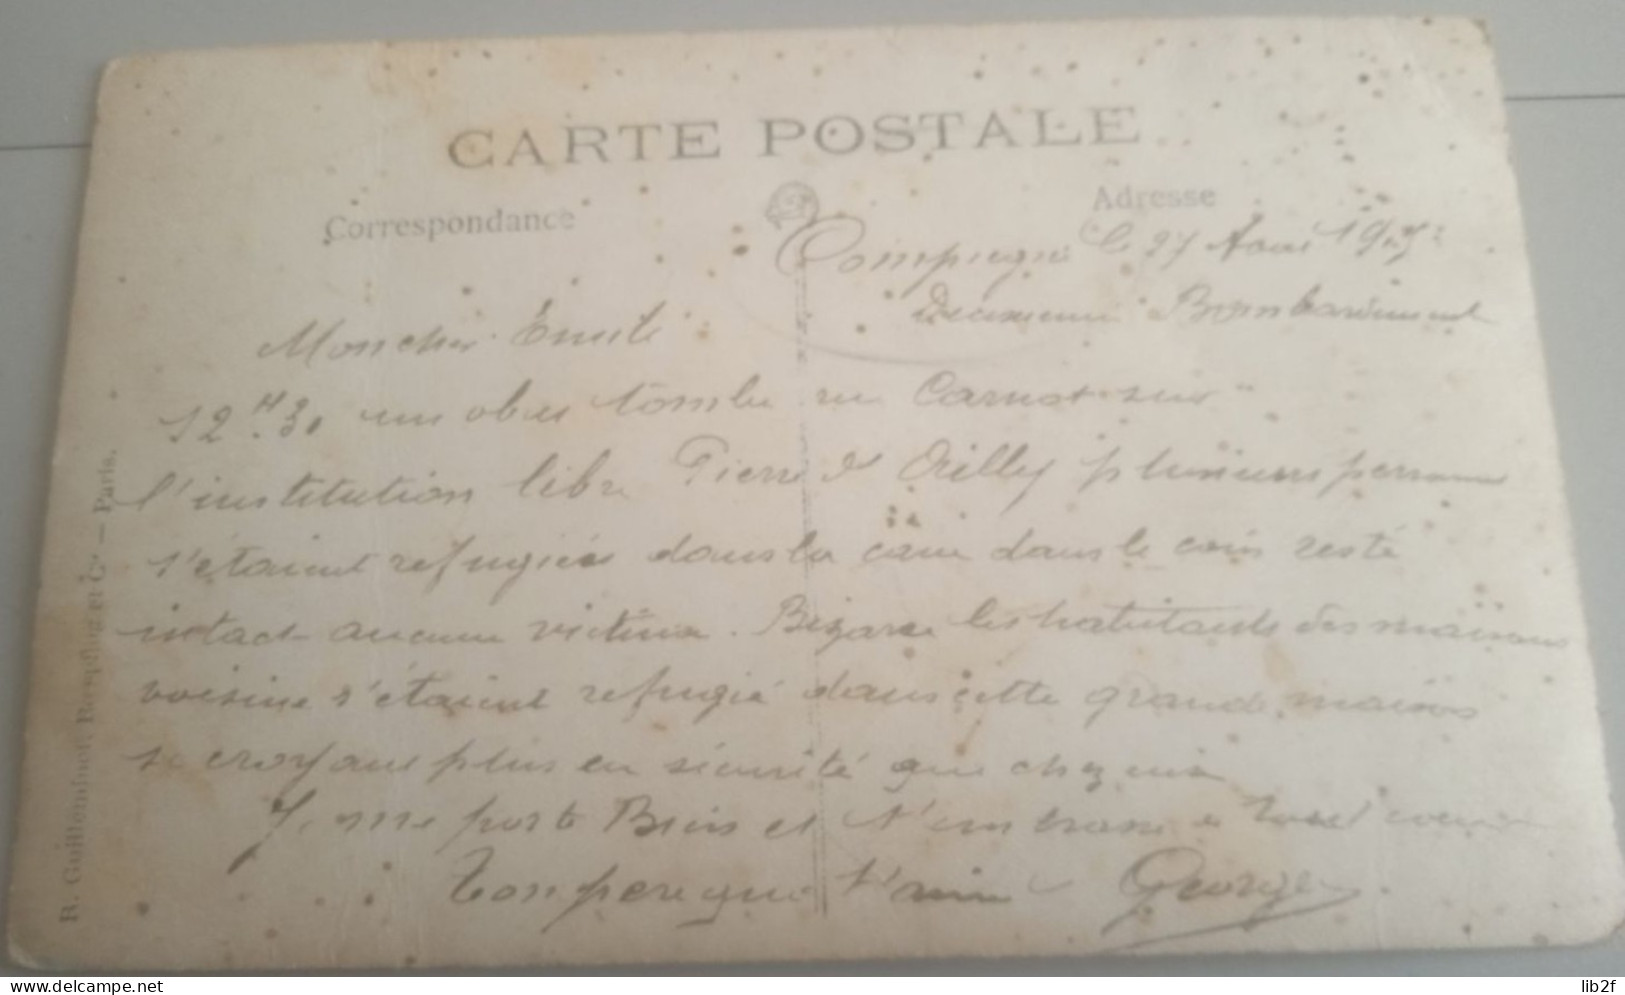 CARTE POSTALE
Correspondance
Adresse
Compiegne le 27 Aout
Bombardement
Mon cher Emile
12 H 30 un obus tombe rue Carnot sur
l'institution libre Pierre d'Ailly plusieurs personnes
s'étaient refugiées dans la cave dans le coin resté
intact aucune victime. Bizare les habitants des maisons
voisine s'étaient refugié dans cette grande maison
se croyant plus en sécurité que chez eux
Je me porte Bien et t'embrasse de tout coeur
Ton pere que t'aime Georges
R. Guilleminot, Boespflug et Cie — Paris.
lib2f